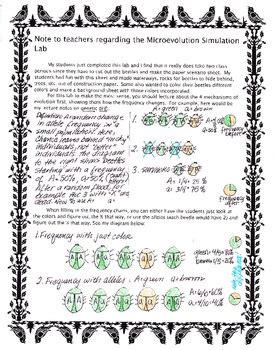 Note to teachers regarding the Microevolution Simulation
Lab
My students just completed this lab and I find that it really does take two class
periods since they have to cut out the beetles and make the paper scenario sheet. My
students had fun with this sheet and made waterways, rocks for beetles to hide behind,
trees, etc. out of construction paper. Would also to color their beetles different
colors and make a background sheet with those colors incorporated.
For this lab to make the most sense, you should lecture about the 4 mechanisms of
evolution first, showing them how the frequency changes. For example, here would be
my lecture notes on genetic
A=green a=brown
Definition: A random change
in allele frequency in a
small population,
chance leaves behind "lucky"
individuals, not "better"
individuals. The diagram
to the right shows beetles
starting with a frequency
of A=50%, a=50%
After a random flood, for
example the 3 with "X" are
dead. Now
1.
2.
3. survivors
A = 1/4 25%
a = 3/4 75%
frequency before
frequency after
When filling in the frequency charts, you can either have the students just look at
the colors and figure out, the % that way, or use the alleles (each beetle would have 2) and
figure out the % that way. See my diagram below:
1. Frequency with just color
AA Aa Aa AA aa
green=4/5=80%
brown=1/5=20%
2. Frequency with alleles: A=green a=brown